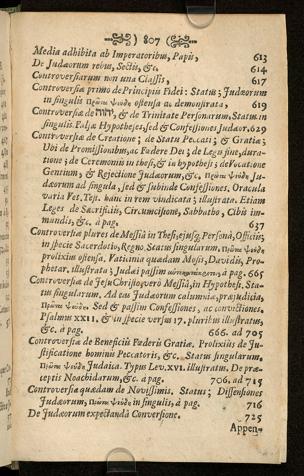 ) 807 (
Media adhibita ab Imperatoribus, Papis, 613
De Judæorum rebus, Sectis, &c. 614
Controversiarum non una Classis, 617
Controversia primo de Principiis Fidei: Status; Judæorum
in singulis πρῶτον ψεῦδος ostensa ac demonstrata, 619
Controversia de יהוה, & de Trinitate Personarum, Status in
singulis. Falsæ Hypotheses, sed & Confessiones Judæor. 629
Controversia de Creatione; de Statu Peccati; & Gratiæ;
Ubi de Promissionibus, ac Fœdere Dei; de Lege sive, dura-
tione; de Ceremoniis in thesi, & in hypothesi; de Vocatione
Gentium, & Rejectione Judæorum, &c. πρῶτον ψεῦδος Ju-
dæorum ad singula, sed & subinde Confessiones, Oracula
varia Vet. Test. hanc in rem vindicata; illustrata. Etiam
Leges de Sacrificiis, Circumcisione, Sabbatho, Cibis im-
mundis, &c. à pag. 637
Controversiæ plures de Messiâ in Thesi, ejusq; Personâ, Officiis;
in specie Sacerdotio, Regno. Status singularum. πρῶτον ψεῦδος
prolixius ostensa. Vaticinia quædam Mosis, Davidis, Pro-
phetar. illustrata; Judæi passim à pag. 665
Controversia de Jesu Christo, vero Messiâ, in Hypothesi. Sta-
tus singularum. Ad eas Judæorum calumniæ, præjudicia,
πρῶτον ψεῦδος. Sed & passim Confessiones, ac convictiones.
Psalmus XXII. & in specie versus 17. pluribus illustratus,
&c. à pag. 666. ad 705
Controversia de Beneficiis Fœderis Gratiæ. Prolixius de Ju-
stificatione hominis Peccatoris, &c. Status singularum.
πρῶτον ψεῦδος Judaica. Typus Lev. XVI. illustratus. De præ-
ceptis Noachidarum, &c. à pag. 706. ad 715
Controversia quædam de Novissimis. Status; Dissensiones
Judæorum, πρῶτον ψεῦδος in singulis, à pag. 716
De Judæorum expectandâ Conversione. 725
Appen-